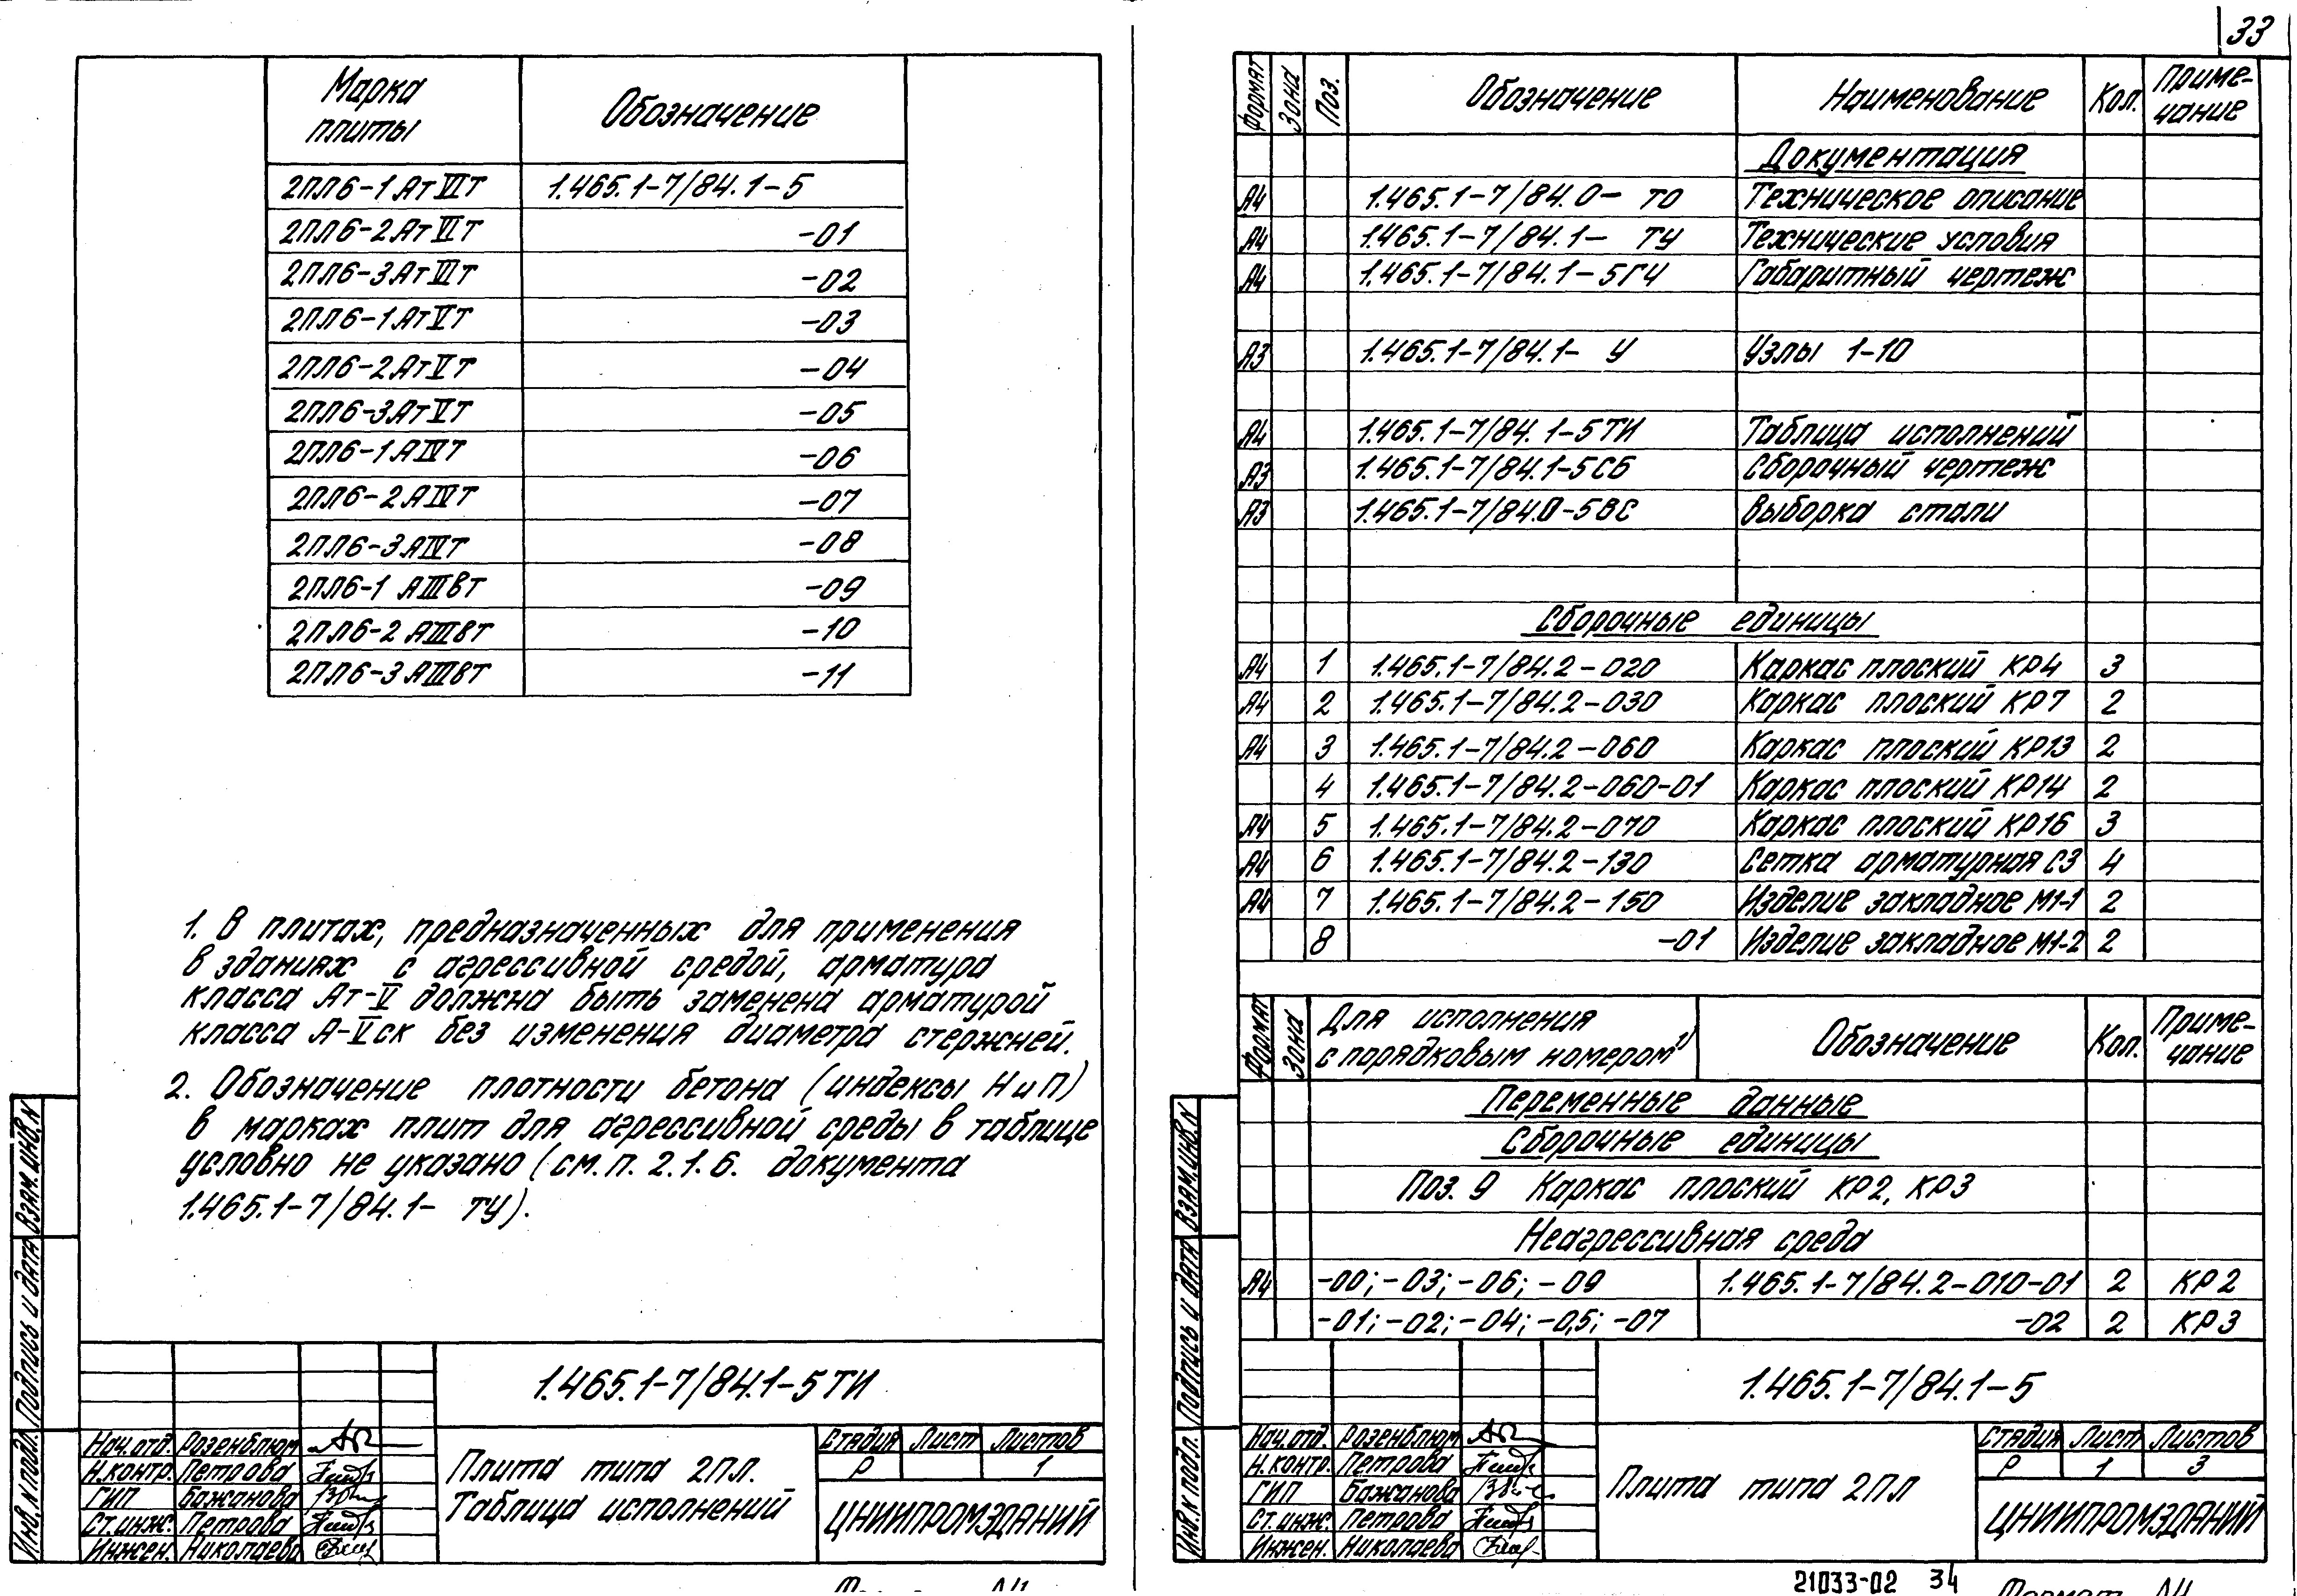 33
Марка плиты | Обозначение
2ПЛ6-1АтVIТ | 1.465.1-7/84.1-5
2ПЛ6-2АтVIТ | -01
2ПЛ6-3АтVIТ | -02
2ПЛ6-1АтVТ | -03
2ПЛ6-2АтVТ | -04
2ПЛ6-3АтVТ | -05
2ПЛ6-1АIVТ | -06
2ПЛ6-2АIVТ | -07
2ПЛ6-3АIVТ | -08
2ПЛ6-1 АIIIвТ | -09
2ПЛ6-2 АIIIвТ | -10
2ПЛ6-3 АIIIвТ | -11
1. В плитах, предназначенных для применения
в зданиях с агрессивной средой, арматура
класса Ат-V должна быть заменена арматурой
класса А-Vск без изменения диаметра стержней.
2. Обозначение плотности бетона (индексы Н и П)
в марках плит для агрессивной среды в таблице
условно не указано (см. п. 2.1.6. документа
1.465.1-7/84.1- ТУ).
Инв. N подл. Подпись и дата Взам. инв. N
1.465.1-7/84.1-5 ТИ
Нач. отд. Розенблюм
Н. контр. Петрова
ГИП Бажанова
Ст. инж. Петрова
Инжен. Николаева
Плита типа 2ПЛ.
Таблица исполнений
Стадия Лист Листов
Р 1
ЦНИИПРОМЗДАНИЙ
Формат Зона Поз. Обозначение Наименование Кол. Приме-
чание
Документация
А4 1.465.1-7/84.0- ТО Техническое описание
А4 1.465.1-7/84.1- ТУ Технические условия
А4 1.465.1-7/84.1-5ГЧ Габаритный чертеж
А3 1.465.1-7/84.1- У Узлы 1-10
А4 1.465.1-7/84.1-5ТИ Таблица исполнений
А3 1.465.1-7/84.1-5СБ Сборочный чертеж
А3 1.465.1-7/84.0-5ВС Выборка стали
Сборочные единицы
А4 1 1.465.1-7/84.2-020 Каркас плоский КР4 3
А4 2 1.465.1-7/84.2-030 Каркас плоский КР7 2
А4 3 1.465.1-7/84.2-060 Каркас плоский КР13 2
4 1.465.1-7/84.2-060-01 Каркас плоский КР14 2
А4 5 1.465.1-7/84.2-070 Каркас плоский КР16 3
А4 6 1.465.1-7/84.2-130 Сетка арматурная С3 4
А4 7 1.465.1-7/84.2-150 Изделие закладное М1-1 2
8 -01 Изделие закладное М1-2 2
Формат Зона Для исполнения
с порядковым номером¹⁾ Обозначение Кол. Приме-
чание
Переменные данные
Сборочные единицы
Поз. 9 Каркас плоский КР2, КР3
Неагрессивная среда
А4 -00; -03; -06; -09 1.465.1-7/84.2-010-01 2 КР2
-01; -02; -04; -0,5; -07 -02 2 КР3
Инв. N подл. Подпись и дата Взам. инв. N
1.465.1-7/84.1-5
Нач. отд. Розенблюм
Н. контр. Петрова
ГИП Бажанова
Ст. инж. Петрова
Инжен. Николаева
Плита типа 2ПЛ
Стадия Лист Листов
Р 1 3
ЦНИИПРОМЗДАНИЙ
21033-02 34
Формат А4